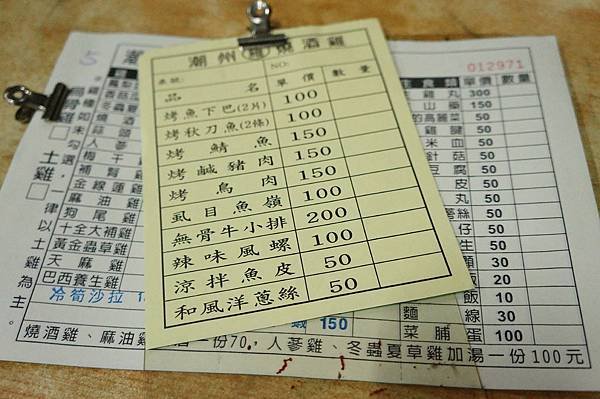 潮州 燒酒雞
桌號: NO:
品名 單價 數量
烤魚下巴(2片) 100
烤秋刀魚(2條) 100
烤鯖魚 150
烤鹹豬肉 150
烤鳥肉 150
虱目魚嶺 100
無骨牛小排 200
辣味風螺 100
涼拌魚皮 50
和風洋蔥絲 50
5
潮
012971
食類 單價 數量
雞丸 300
山藥 150
的高麗菜 50
雞腱 50
米血 50
針菇 50
豆腐 50
皮 50
絲 50
仔 50
生 50
30
飯 20
飯 10
麵線 30
菜脯蛋 100
燒酒
蒜頭
人蔘
梅干
金線蓮雞
麻油雞
狗尾雞
十全大補雞
黃金蟲草雞
天麻雞
巴西養生雞
冷筍沙拉
蝦 150
土雞
一律以土雞為主。
燒酒雞、麻油雞 一份70,人蔘雞、冬蟲夏草雞加湯一份100元